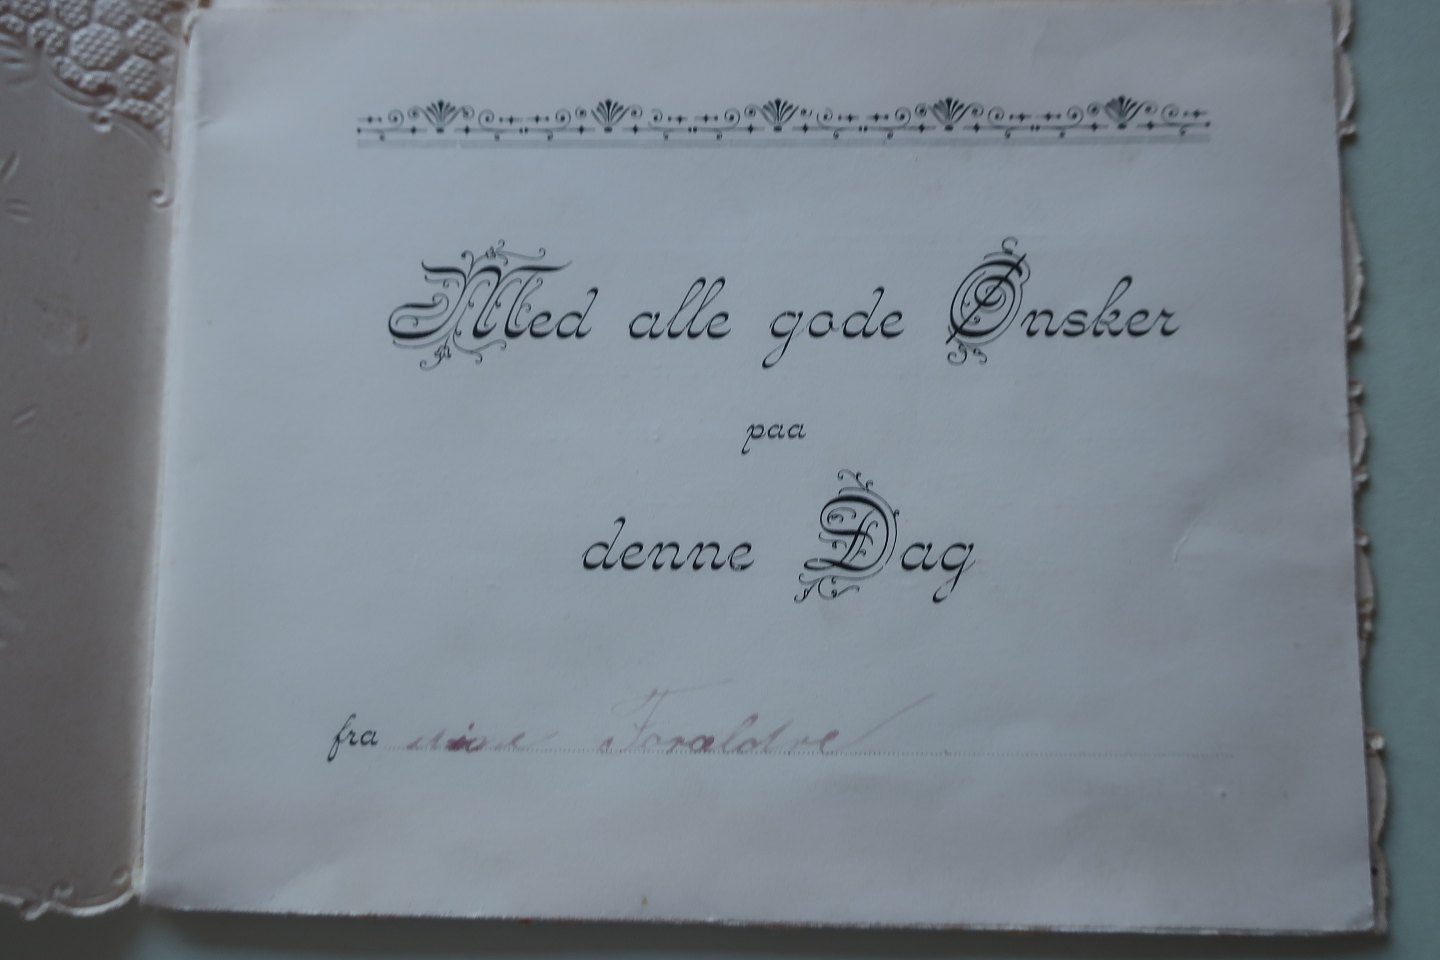 Med alle gode Ønsker
paa
denne Dag
fra mine Forældre